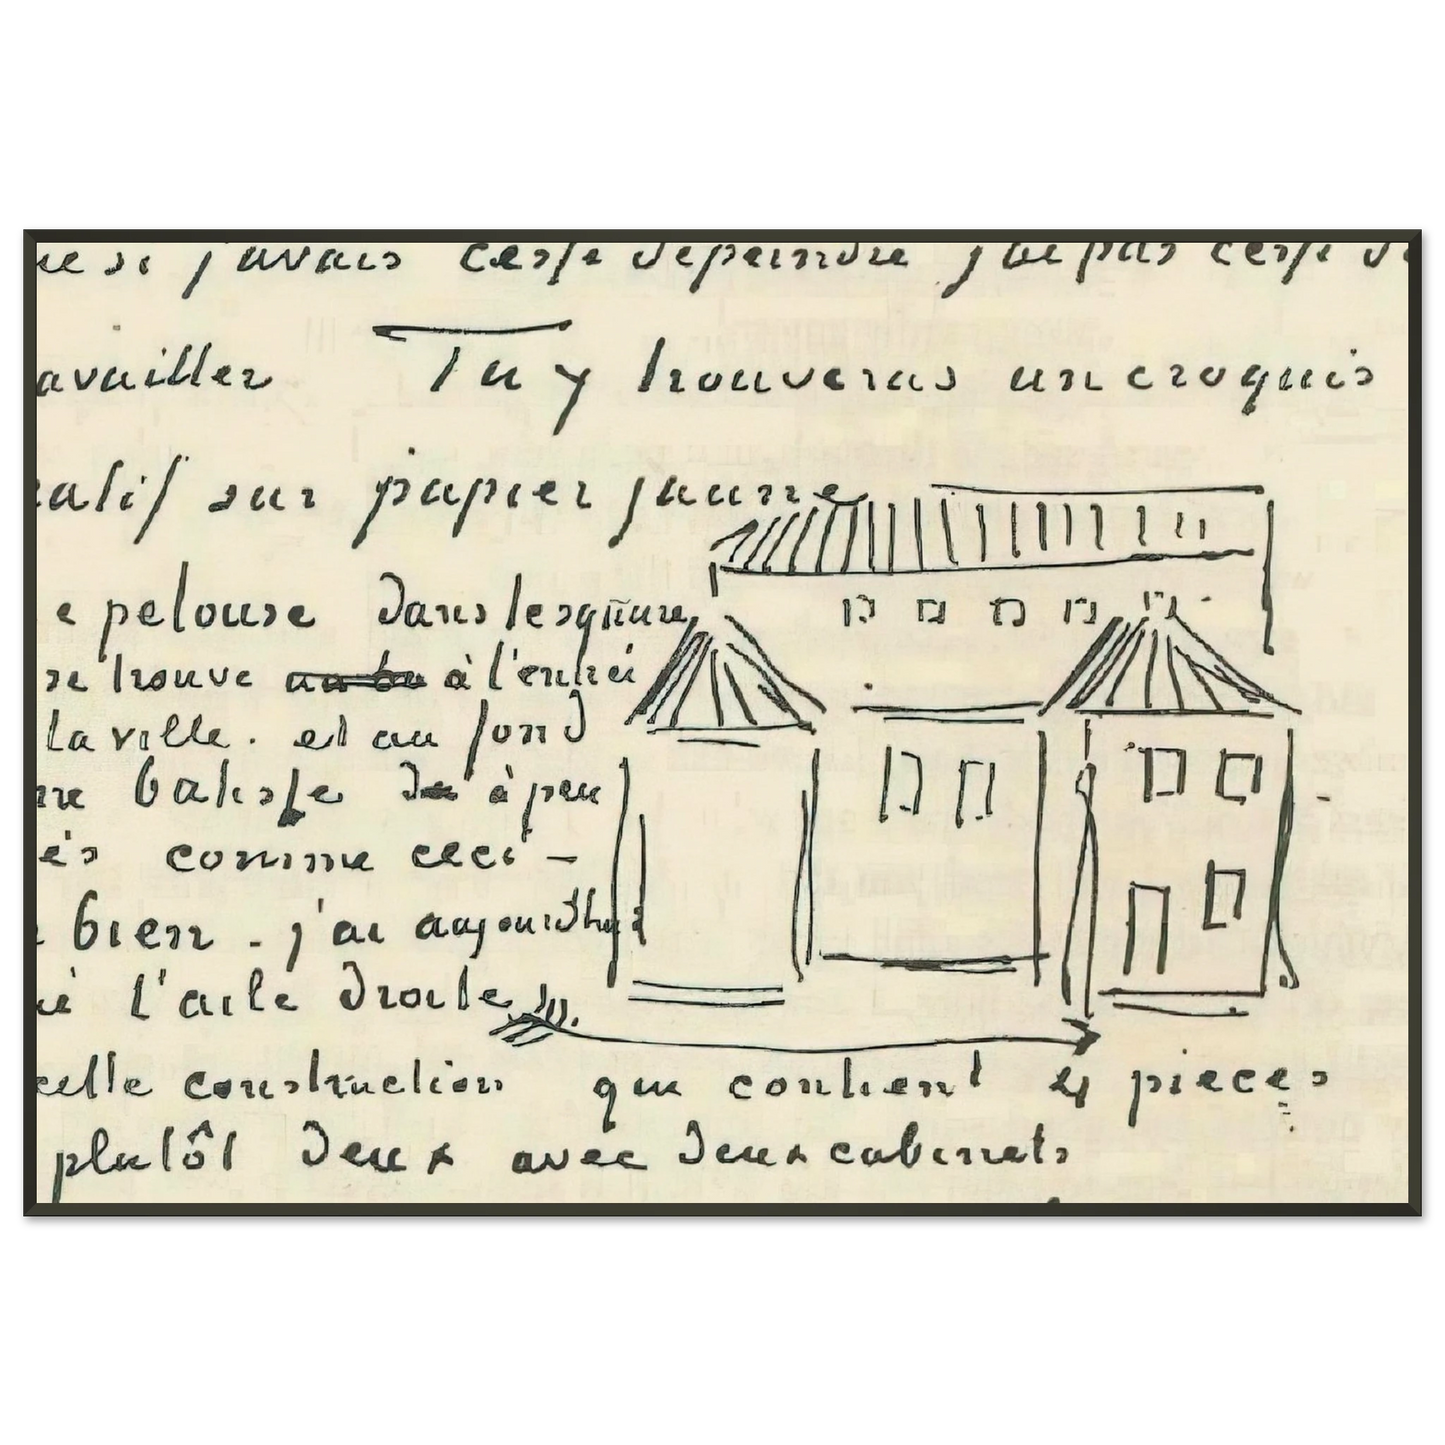 ue si j'avais cessé de peindre j'ai pas cessé de
availler Tu y trouveras un croquis
atif sur papier jaune
e pelouse dans le square
se trouve à l'entrée
la ville. et au fond
ne batisse à peu
ès comme ceci –
bien. j'ai aujourdhui
é l'aile droite
cette construction qui contient 4 pieces
plutôt deux avec deux cabinets